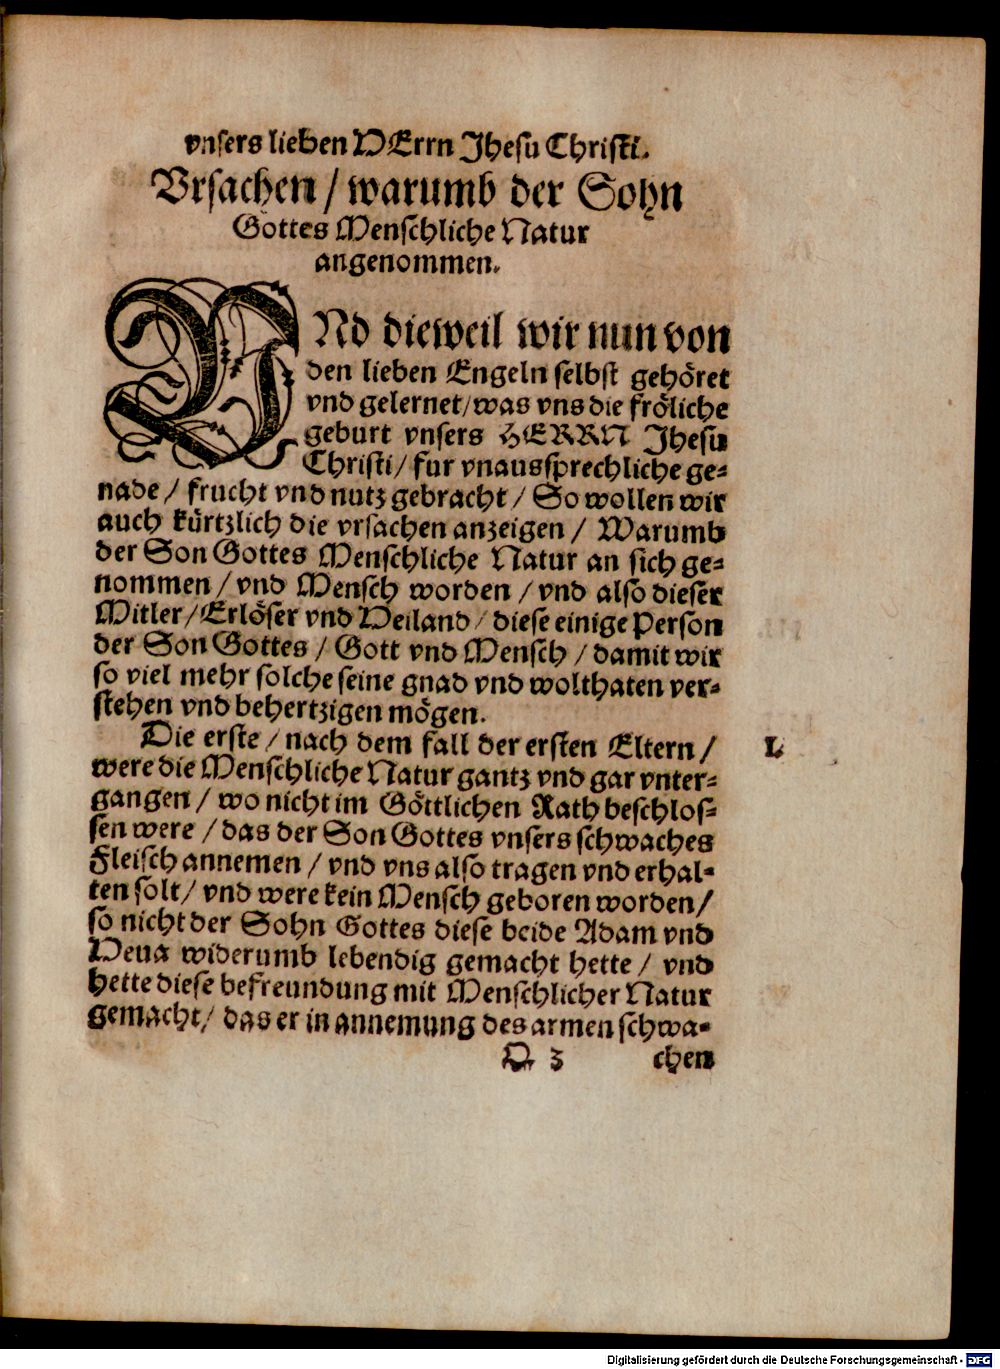 vnsers lieben HErrn Jhesu Christi.
Vrsachen / warumb der Sohn
Gottes Menschliche Natur
angenommen.
VNd dieweil wir nun von
den lieben Engeln selbst gehöret
vnd gelernet / was vns die fröliche
geburt vnsers HERRN Jhesu
Christi / fur vnaussprechliche ge=
nade / frucht vnd nutz gebracht / So wollen wir
auch kürtzlich die vrsachen anzeigen / Warumb
der Son Gottes Menschliche Natur an sich ge=
nommen / vnd Mensch worden / vnd also dieser
Mitler / Erlöser vnd Heiland / diese einige Person
der Son Gottes / Gott vnd Mensch / damit wir
so viel mehr solche seine gnad vnd wolthaten ver=
stehen vnd behertzigen mögen.
Die erste / nach dem fall der ersten Eltern / I.
were die Menschliche Natur gantz vnd gar vnter=
gangen / wo nicht im Göttlichen Rath beschlos=
sen were / das der Son Gottes vnsers schwaches
Fleisch annemen / vnd vns also tragen vnd erhal=
ten solt / vnd were kein Mensch geboren worden /
so nicht der Sohn Gottes diese beide Adam vnd
Heua widerumb lebendig gemacht hette / vnd
hette diese befreundung mit Menschlicher Natur
gemacht / das er in annemung des armen schwa=
Q 3 chen
Digitalisierung gefördert durch die Deutsche Forschungsgemeinschaft - DFG